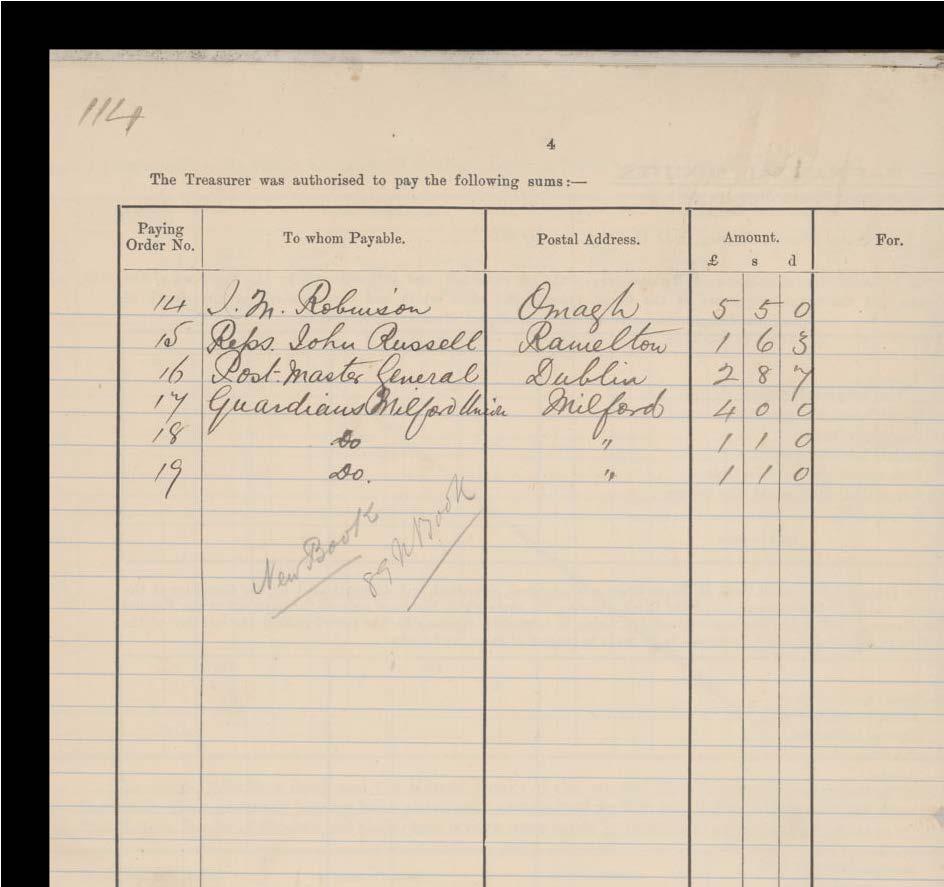 114
4
The Treasurer was authorised to pay the following sums:—
Paying Order No. To whom Payable. Postal Address. Amount. For.
£ s d
14 J. M. Robinson Omagh 5 5 0
15 Reps. John Russell Ramelton 1 6 3
16 Post-Master General Dublin 2 8 7
17 Guardians Milford Union Milford 4 0 0
18 Do " 1 1 0
19 Do. " 1 1 0
New Book
Book